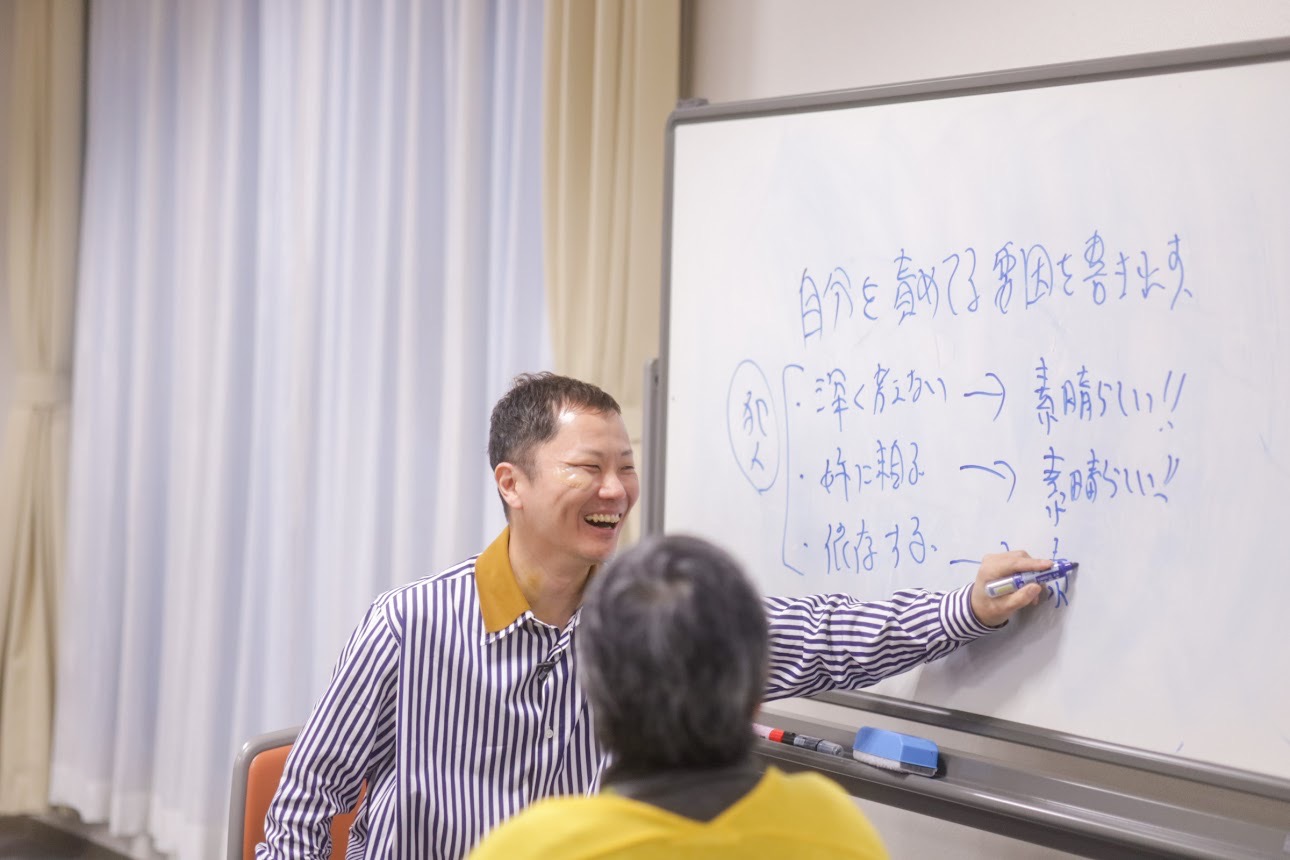 自分を責めてる要因を書き出す
犯人
・深く考えない → 素晴らしい!!
・嫌に相手 → 素晴らしい!!
・依存する → 素